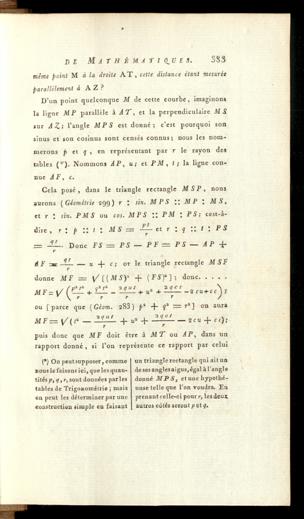 DE MATHÉMATIQUES. 383
même point M à la droite AT, cette distance étant mesurée
parallèlement à AZ?
D'un point quelconque M de cette courbe, imaginons
la ligne MP parallèle à AT, et la perpendiculaire MS
sur AZ; l'angle MPS est donné; c'est pourquoi son
sinus et son cosinus sont censés connus; nous les nom-
merons p et q, en représentant par r le rayon des
tables (*). Nommons AP, u; et PM, t; la ligne con-
nue AF, c.
Cela posé, dans le triangle rectangle MSP, nous
aurons (Géométrie 299) r : sin. MPS :: MP : MS,
et r : sin. PMS ou cos. MPS :: PM : PS; cest-à-
dire, r : p :: t : MS = pt/r et r : q :: t : PS
= qt/r. Donc FS = PS — PF = PS — AP +
AF = qt/r — u + c; or le triangle rectangle MSF
donne MF = √[(MS)² + (FS)²]; donc.....
MF=√(p²t²/r² + q²t²/r² — 2qut/r + u² + 2qct/r — 2cu+cc);
ou [parce que (Géom. 283) p² + q² = r²] on aura
MF=√(t² — 2qut/r + u² + 2qct/r — 2cu + cc);
puis donc que MF doit être à MT ou AP, dans un
rapport donné, si l'on représente ce rapport par celui
(*) On peut supposer, comme
nous le faisons ici, que les quan-
tités p, q, r, sont données par les
tables de Trigonométrie; mais
on peut les déterminer par une
construction simple en faisant
un triangle rectangle qui ait un
de ses angles aigus, égal à l'angle
donné MPS, et une hypothé-
nuse telle que l'on voudra. En
prenant celle-ci pour r, les deux
autres côtés seront p et q.